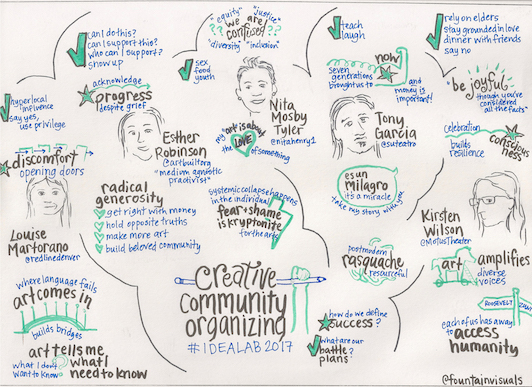 can I do this?
can I support this?
who can I support?
show up
acknowledge
progress
despite grief
hyperlocal
influence
say yes,
use privilege
discomfort
opening doors
Louise
Martorano
@redlinedenver
where language fails
art comes in
builds bridges
art tells me
what I don't
want to know
what I
need to know
Esther
Robinson
@artbuiltorg
"medium agnostic
practivist"
radical
generosity
get right with money
hold opposite truths
make more art
build beloved community
"equity" "justice"
we are
?? confused ??
"diversity" "inclusion"
sex
food
youth
Nita
Mosby
Tyler
@nitahenry1
my art is about
the LOVE of something
systemic collapse happens
in the individual
fear + shame
is kryptonite
for the arts
creative
community
organizing
#IDEALAB 2017
teach
laugh
now
seven
generations
brought us to
and money
is important!
Tony
Garcia
@suteatro
es un
milagro
it's a miracle
take my story with you
postmodern
rasquache
resourceful
how do we define
success?
what are our
battle
plans?
rely on elders
stay grounded in love
dinner with friends
say no
"be joyful
though you've
considered
all the facts"
celebration
builds
resilience
consciousness
Kirsten
Wilson
@MotusTheater
art amplifies
diverse
voices
ROOSEVELT
each of us has a way
to access
humanity
@fountainvisuals